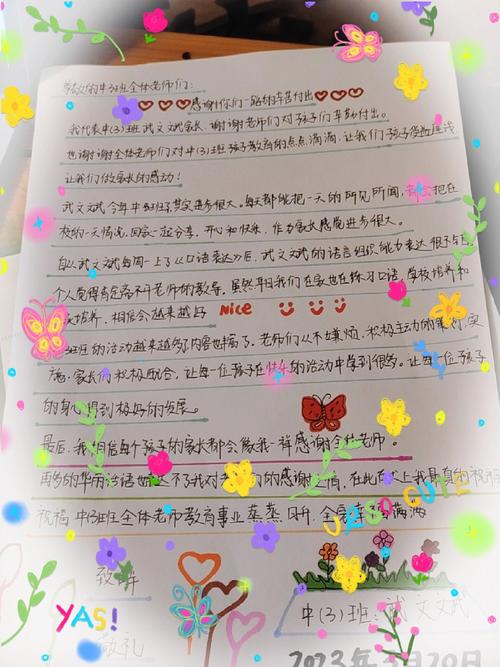 尊敬的中3班全体老师们:
感谢你们一路的辛苦付出
我代表中(3)班武文斌家长,谢谢老师们对孩子们辛勤付出。
也谢谢全体老师们对中(3)班孩子教育的点点滴滴,让我们孩子
让我们做家长的感动!
武文斌今年中班了,其实进步很大。每天都能把一天的所见所闻,都会把在
校的一天情况,回家一起分享,开心和快乐,作为家长感觉进步很大。
自从武文斌每周一上了《口语表达》后,武文斌的语言组织能力表达很不错
个人觉得肯定离不开老师的教导,虽然平日我们在家也在练习口语,学校培养和
培养,相信会越来越好 Nice
班的活动越来越多了,内容也丰富了,老师们从不嫌烦,积极主动的
施,家长们积极配合,让每一位孩子在快乐的活动中学到很多。让每一位孩子
的身心得到极好的发展。
最后,我相信每个孩子的家长都会像我一样感谢全体老师。
再多的华丽话语也不了我对老的感谢之情,在此献上我最真的祝福
祝福中3班全体老师教育事业蒸蒸日升,全家幸福满满
U R SO CUTE
致
YAS!
中(3)班:武文斌
敬礼
2023年 月20日